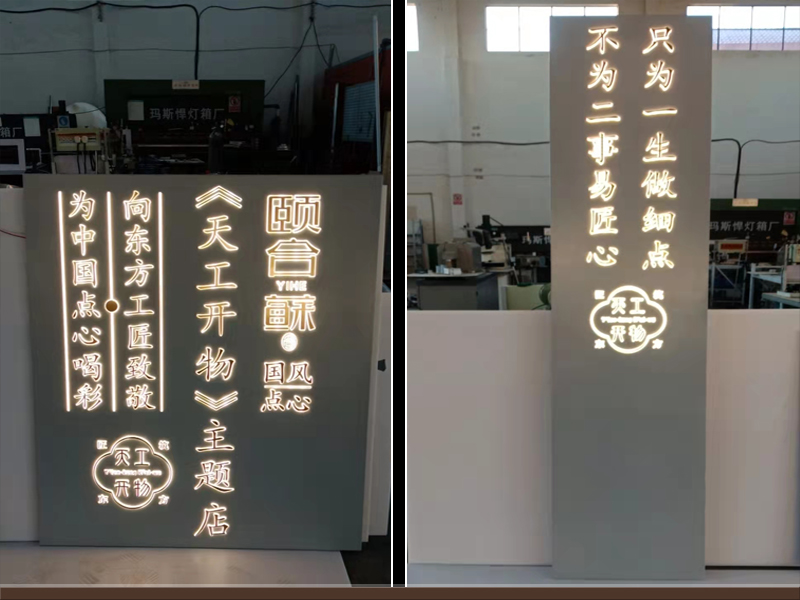 玛斯悍灯箱厂
箱厂
颐合酥
YIHE
国风
点心
《天工开物》主题店
向东方工匠致敬
为中国点心喝彩
天工
开物
东方
玛斯悍灯箱厂
只为一生做细点
不为二事易匠心
天工
开物
东方